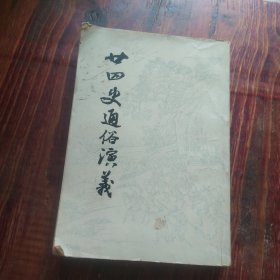 廿四史通俗演義